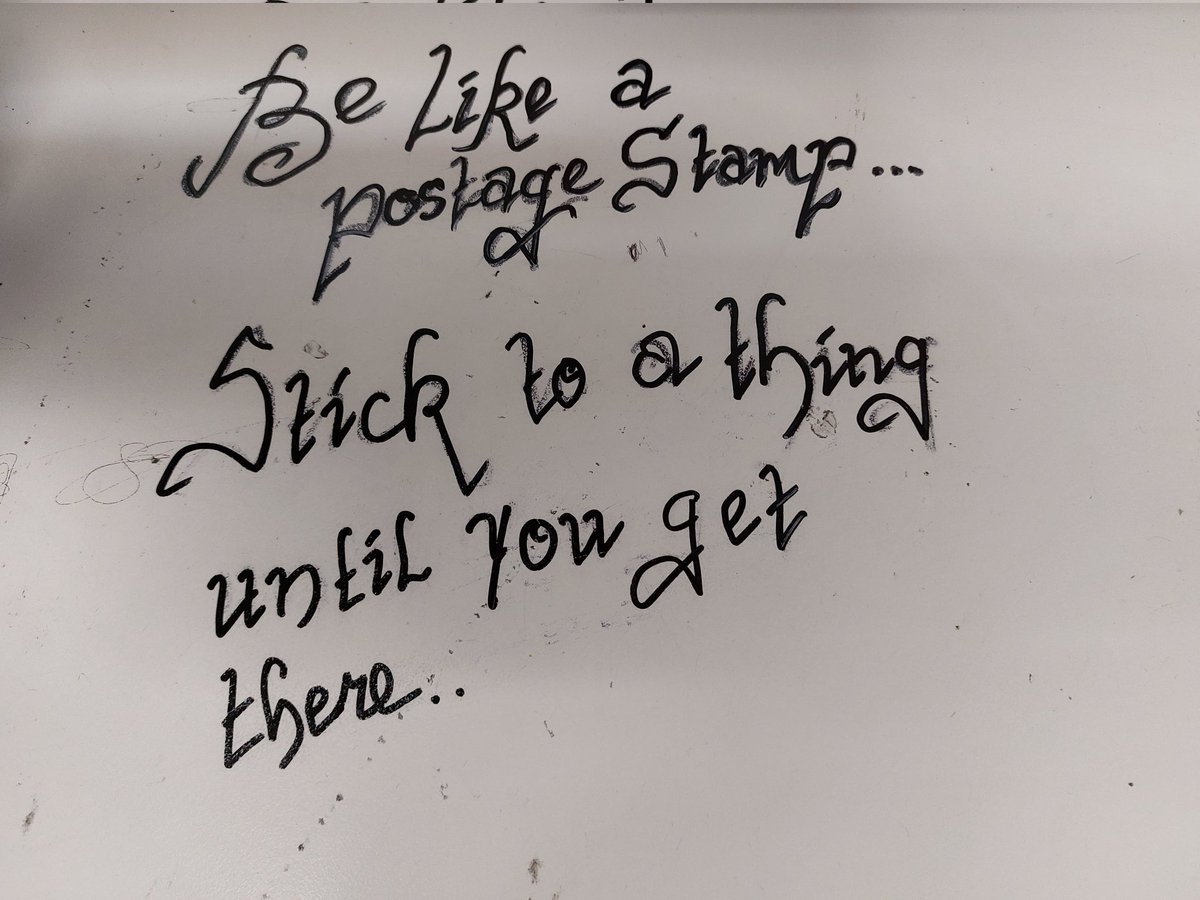 Be Like a
postage Stamp...
Stick to a thing
until you get
there..